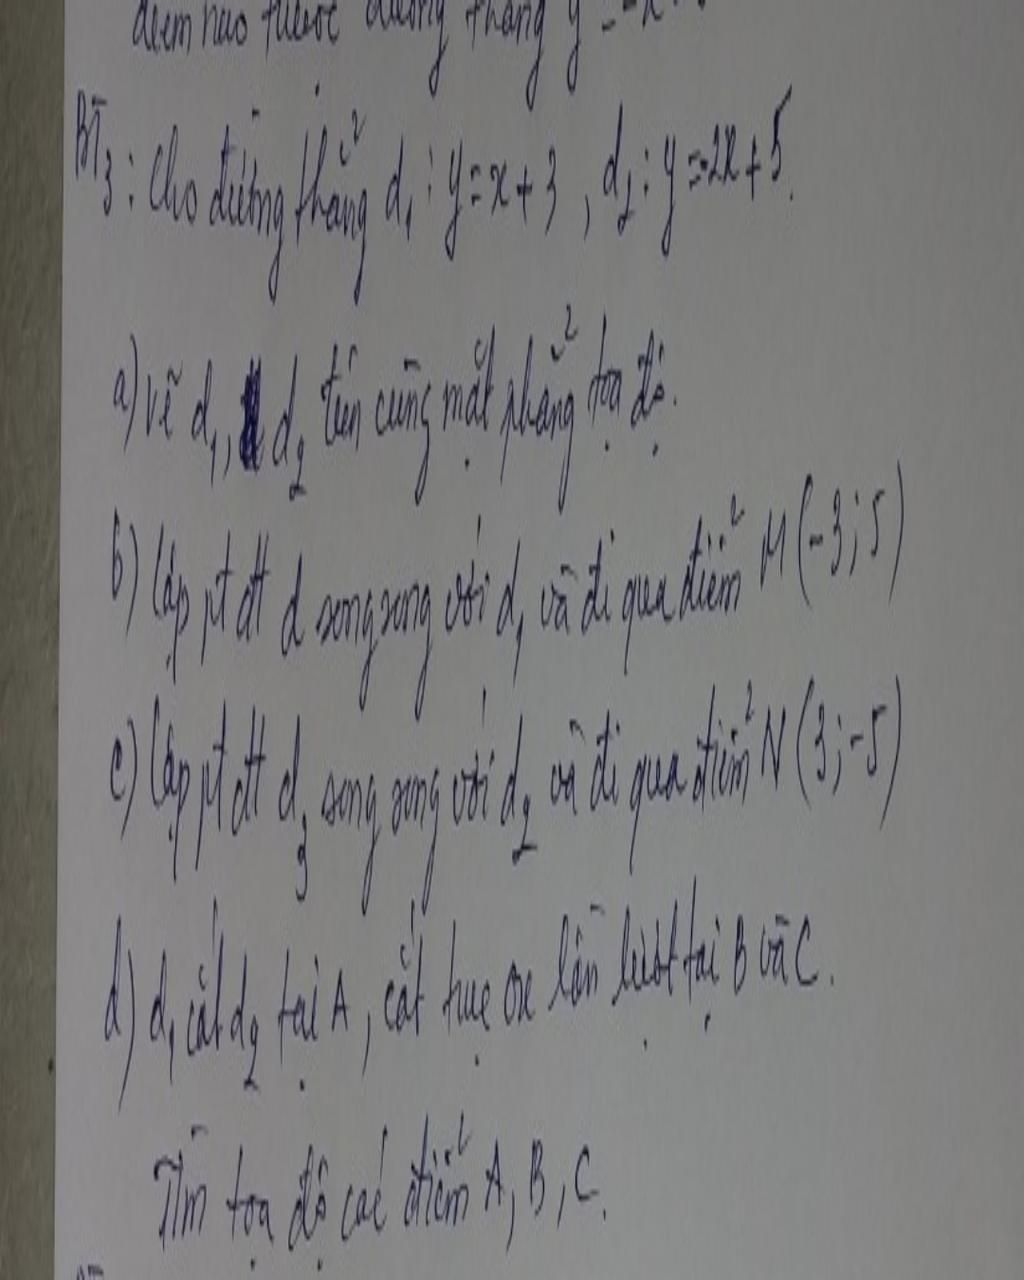 điểm nào thuộc đường thẳng y = -x
BT3: Cho đường thẳng d1: y = x + 3, d2: y = -2x + 5.
a) Vẽ d1, d2 trên cùng mặt phẳng tọa độ.
b) Lập pt đt d song song với d1 và đi qua điểm M(-3; 5)
c) Lập pt đt d3 song song với d2 và đi qua điểm N(3; -5)
d) d1 cắt d2 tại A, cắt trục ox lần lượt tại B và C.
Tìm tọa độ các điểm A, B, C.